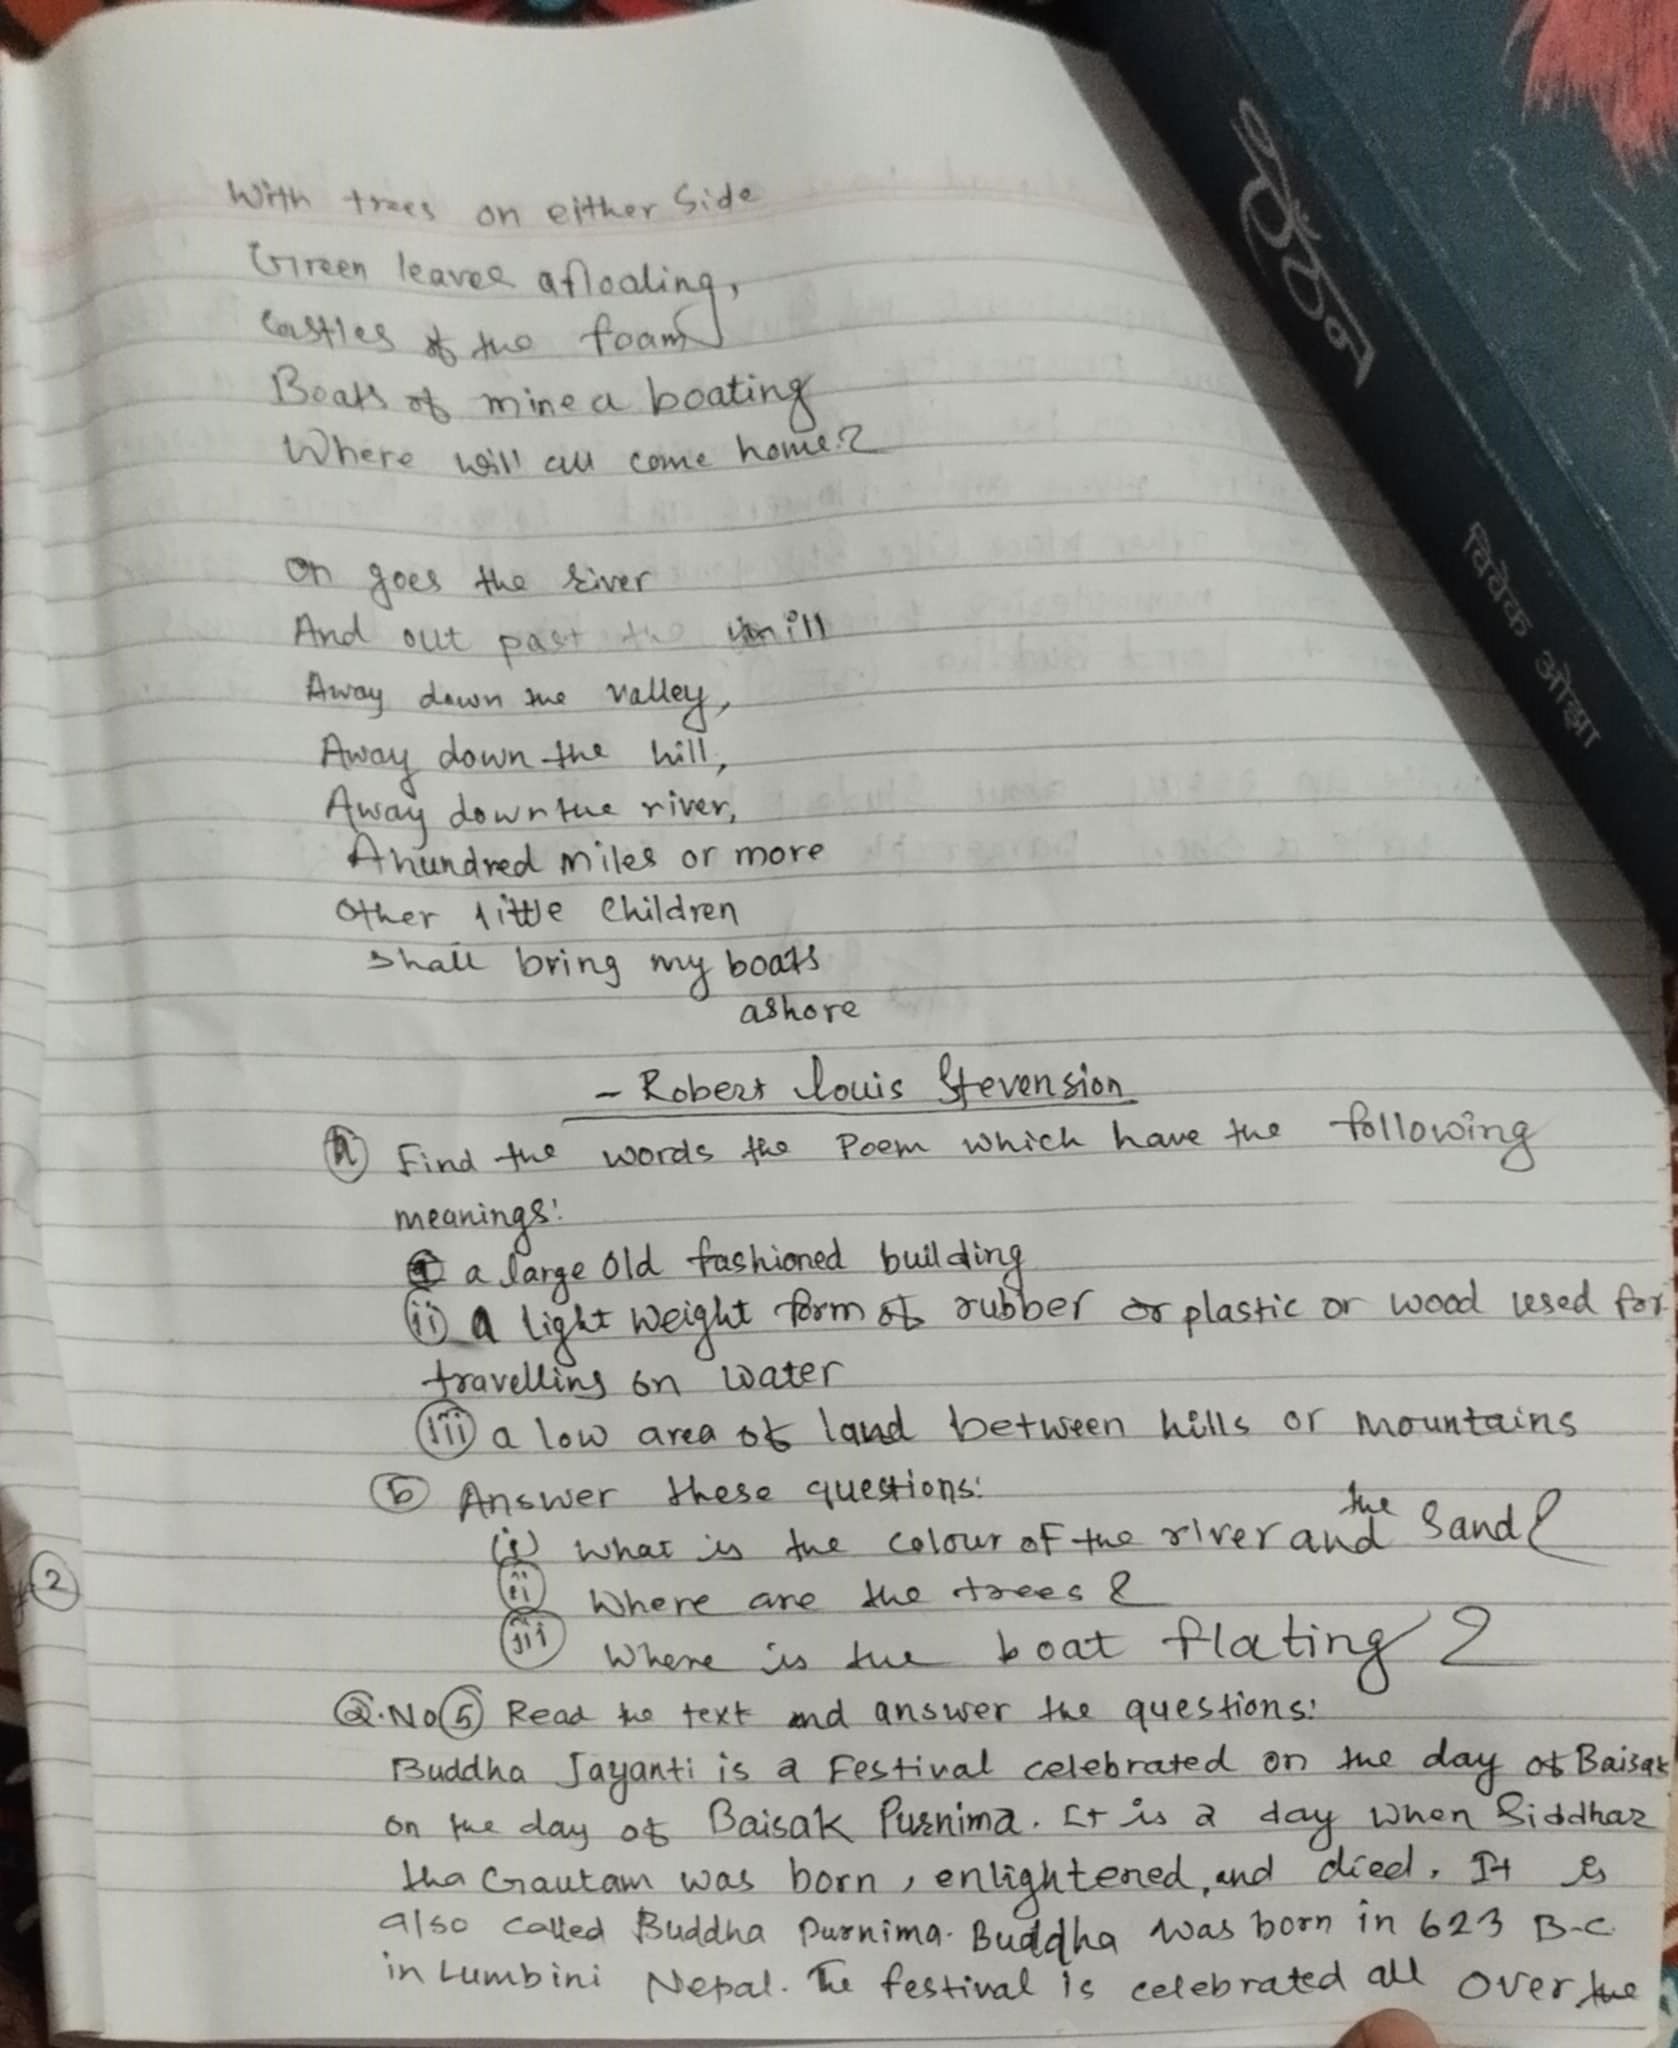 With trees on either Side
Green leavee afloading,
Castles of the foam
Boats of mine a boating
Where will all come home?
On goes the river
And out past the mill
Away down the valley,
Away down the hill,
Away down the river,
A hundred miles or more
Other little Children
Shall bring my boats
ashore
- Robert Louis Stevension
a Find the words the Poem which have the following
meanings:
a large old fashioned building
ii a light weight form of rubber or plastic or wood used for
travelling on water
iii a low area of land between hills or mountains
b Answer these questions:
(i) What is the colour of the river and the Sand?
ii Where are the trees?
iii Where is the boat flating?
2
Q.No 5 Read the text and answer the questions:
Buddha Jayanti is a Festival celebrated on the day of Baisak
on the day of Baisak Purnima. It is a day when Siddhar
tha Gautam was born, enlightened, and died. It is
also called Buddha Purnima. Buddha was born in 623 B.C
in Lumbini Nepal. The festival is celebrated all over the
लुंठन
विवेक ओझा